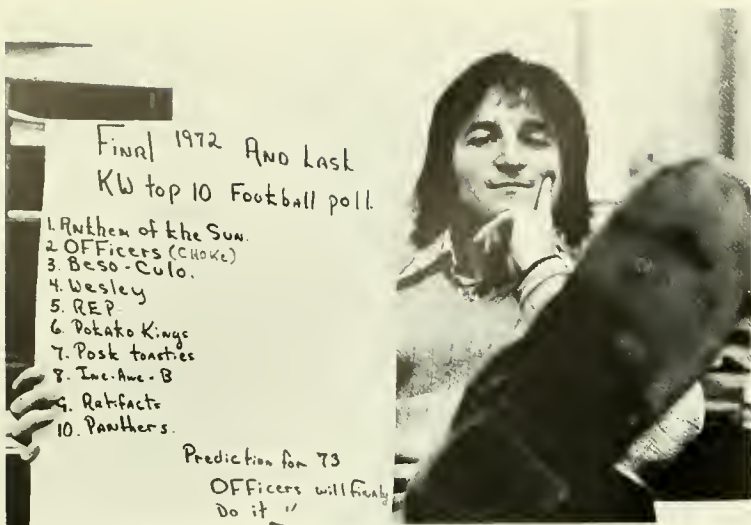 Final 1972 And Last
KW top 10 Football poll
1. Anthem of the Sun.
2 OFFicers (CHOKe)
3. Beso-Culo.
4. Wesley
5. REP
6. Potato Kings
7. Post toasties
8. Ine-Awe-B
9. Ratifacts
10. Panthers.
Prediction for 73
OFFicers will Finaly
Do it "